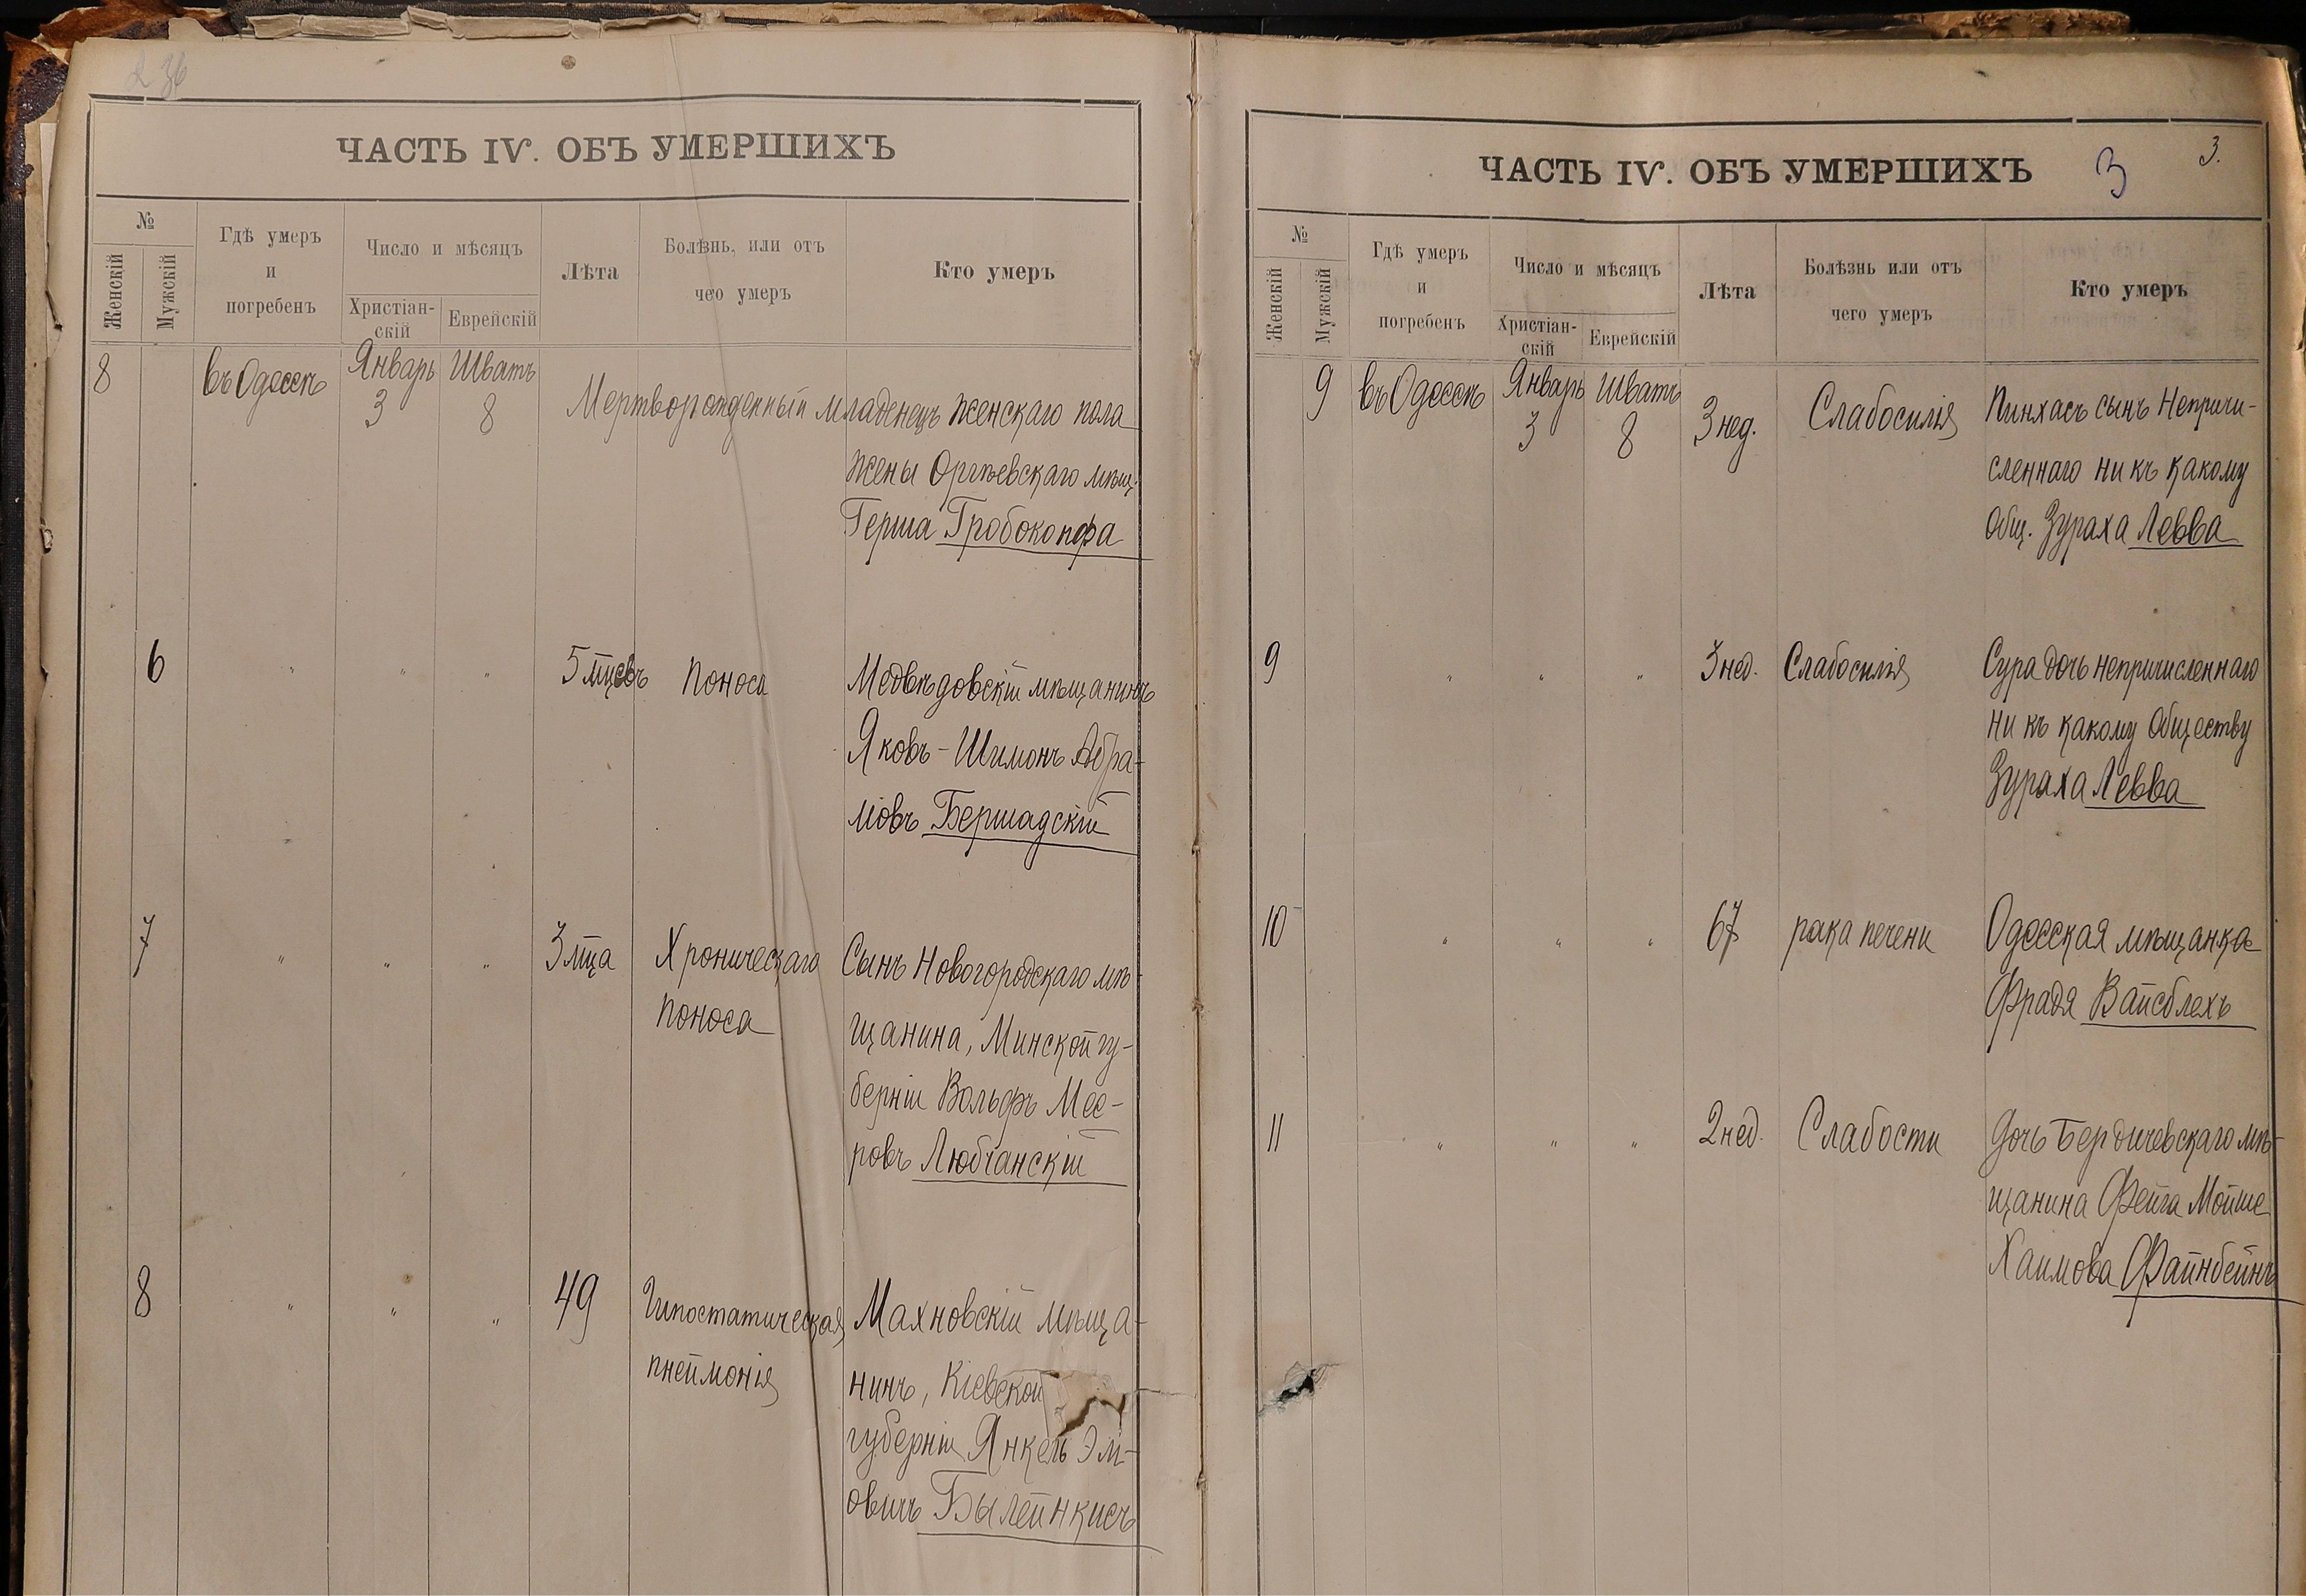 2 36
ЧАСТЬ IV. ОБЪ УМЕРШИХЪ
№
Женскій
Мужскій
Гдѣ умеръ
и
погребенъ
Число и мѣсяцъ
Христіан-
скій
Еврейскій
Лѣта
Болѣзнь, или отъ
чего умеръ
Кто умеръ
8 въ Одессѣ Январь Шватъ
3 8 Мертворожденный младенецъ женскаго пола
жены Оргѣевскаго мѣщ.
Герша Гробокопфа
6 " " " 5 мцевъ Поноса Медвѣдовскій мѣщанинъ
Яковъ-Шимонъ Абра-
мовъ Бершадскій
7 " " " 3 мца Хроническаго Сынъ Новогородскаго мѣ-
поноса щанина, Минской гу-
берніи Вольфъ Мее-
ровъ Любчанскій
8 " " " 49 Гипостатическая Махновскій мѣща-
пнеймонія нинъ, Кіевской
губерніи Янкель Эл-
овичъ Былейнкисъ
ЧАСТЬ IV. ОБЪ УМЕРШИХЪ 3 3.
№
Женскій
Мужскій
Гдѣ умеръ
и
погребенъ
Число и мѣсяцъ
Христіан-
скій
Еврейскій
Лѣта
Болѣзнь или отъ
чего умеръ
Кто умеръ
9 въ Одессѣ Январь Шватъ
3 8 3 нед. Слабосилія Пинхасъ сынъ Непричи-
сленнаго ни къ какому
Общ. Зураха Левва
9 " " " 3 нед. Слабосилія Сура дочь непричисленнаго
ни къ какому Обществу
Зураха Левва
10 " " " 67 рака печени Одесская мѣщанка
Фрадя Вайсблехъ
11 " " " 2 нед. Слабости Дочь Бердичевскаго мѣ-
щанина Фейга Мойше
Хаимова Файнбейнъ